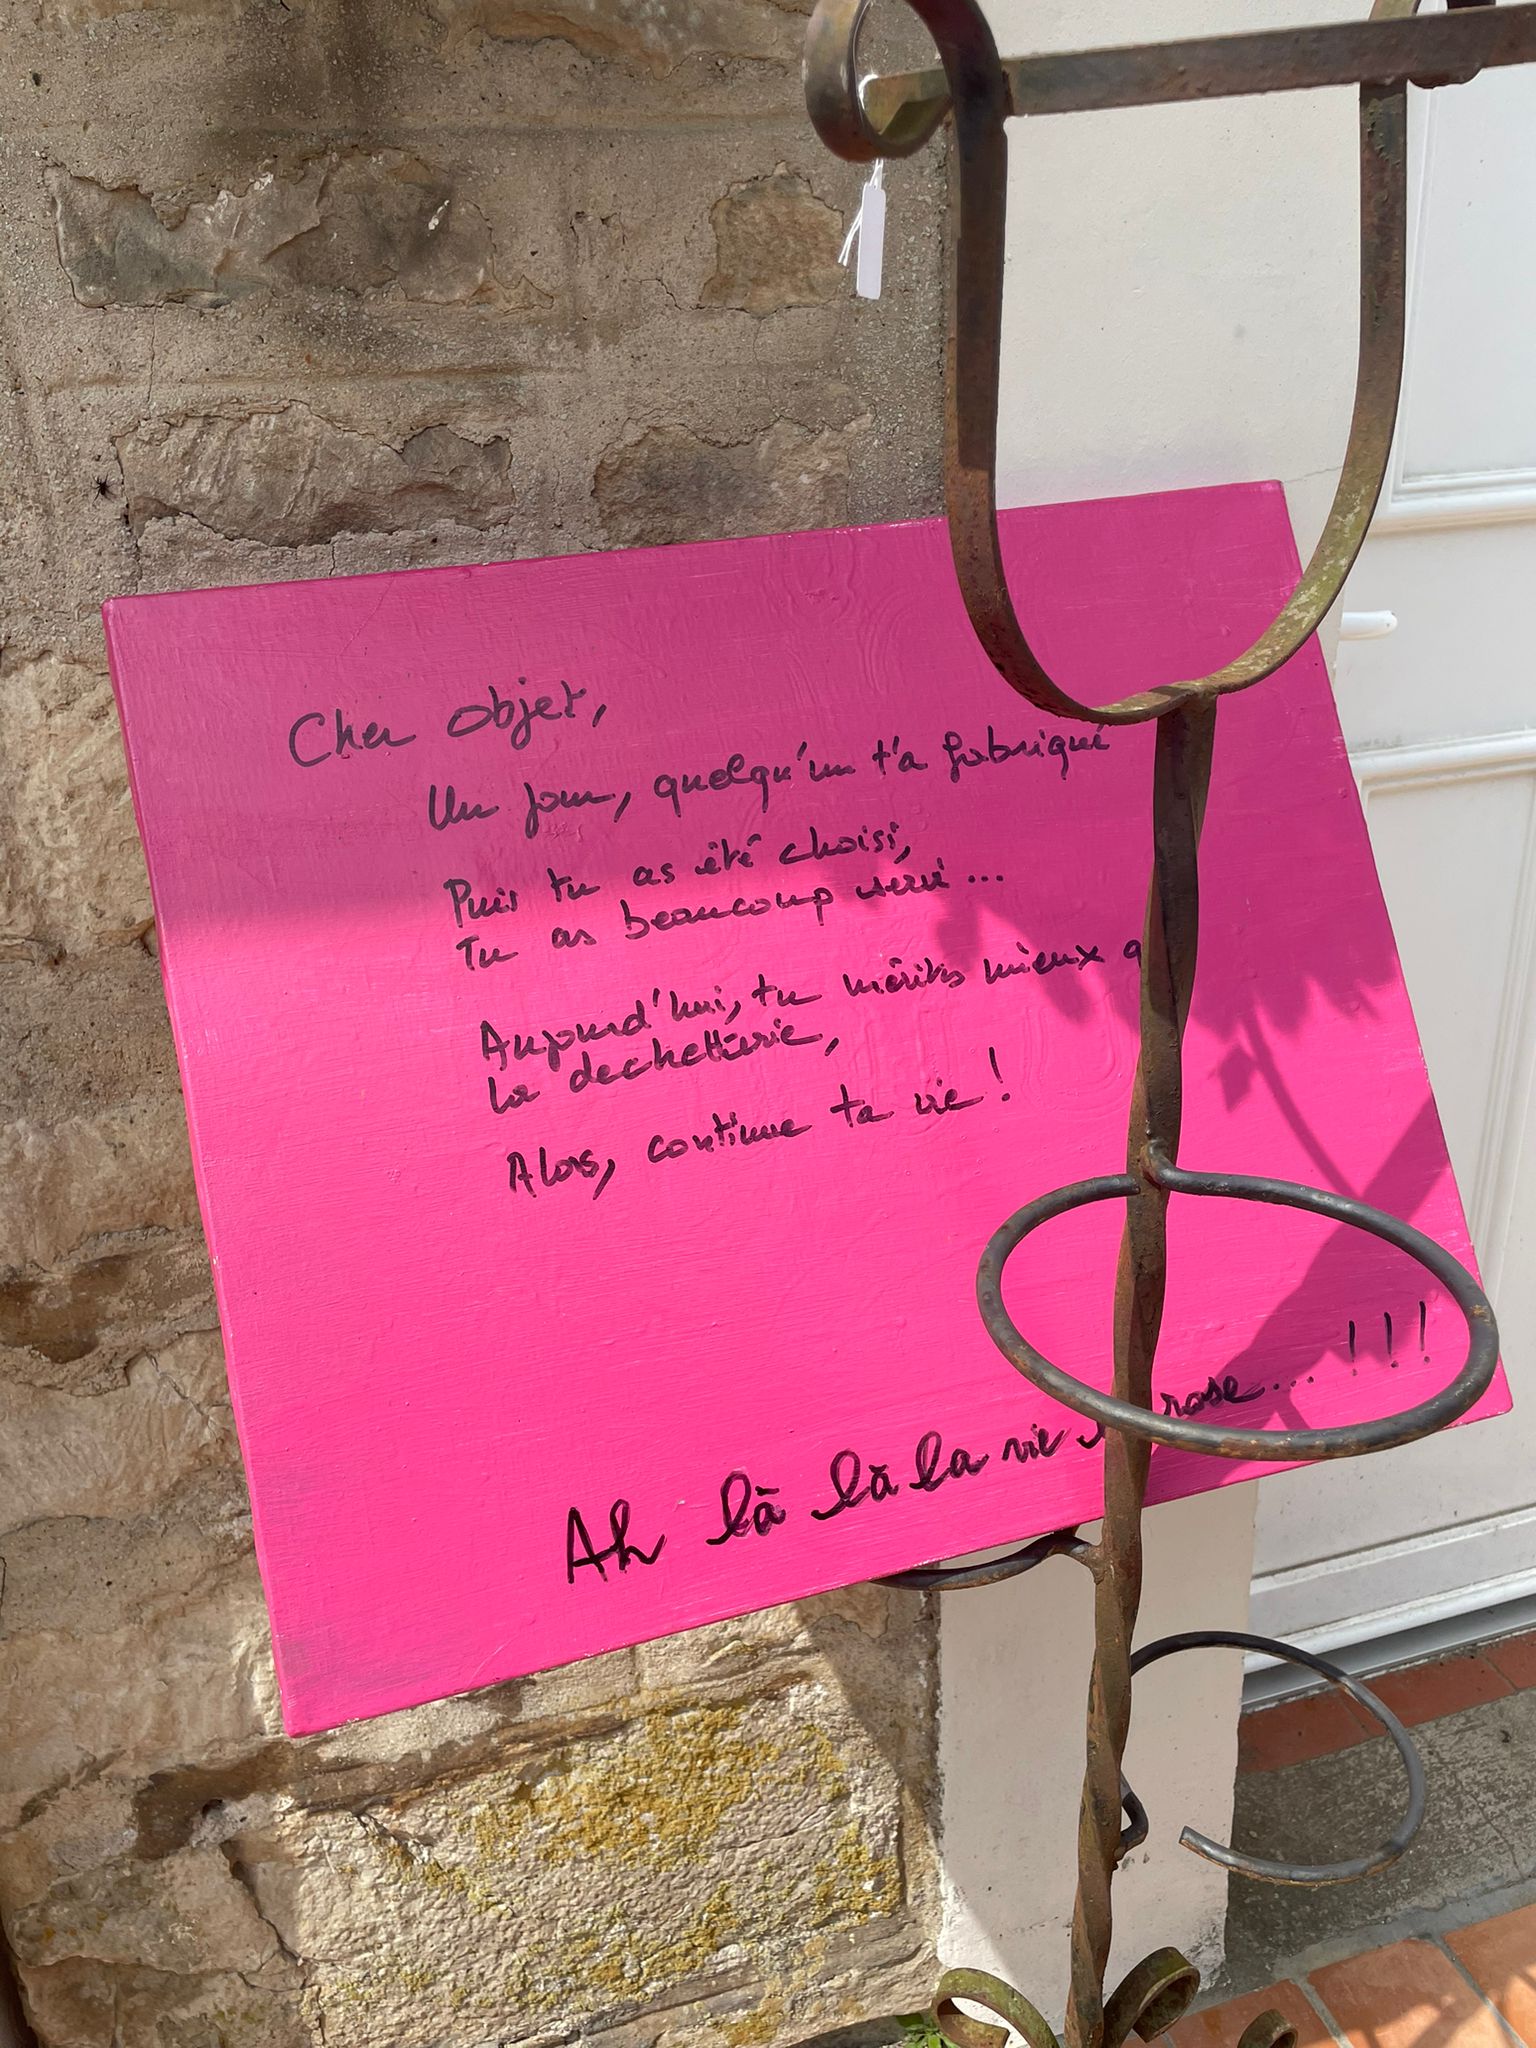 Cher objet,
Un jour, quelqu'un t'a fabriqué
Puis tu as été choisi,
Tu as beaucoup servi...
Aujourd'hui, tu mérites mieux q
la dechetterie,
Alors, continue ta vie !
Ah là là la vie rose... !!!